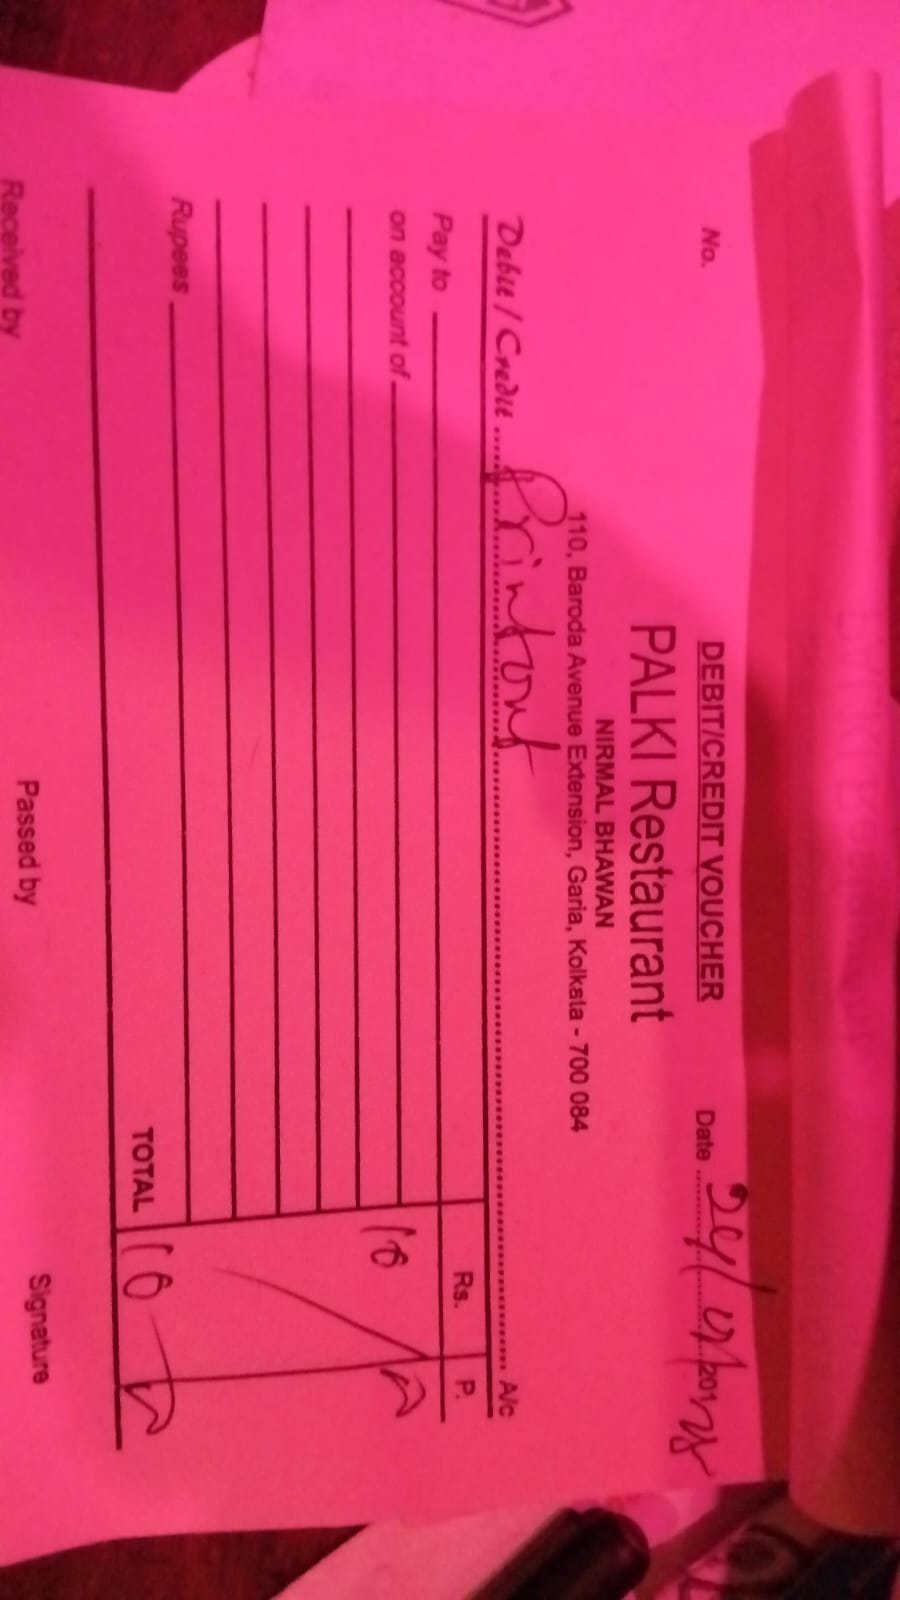 DEBIT/CREDIT VOUCHER
No.
Date
PALKI Restaurant
NIRMAL BHAWAN
110, Baroda Avenue Extension, Garia, Kolkata - 700 084
Debit / Credit Printout A/c
Rs. P.
Pay to
on account of 10
Rupees
TOTAL 10
Received by Passed by Signature